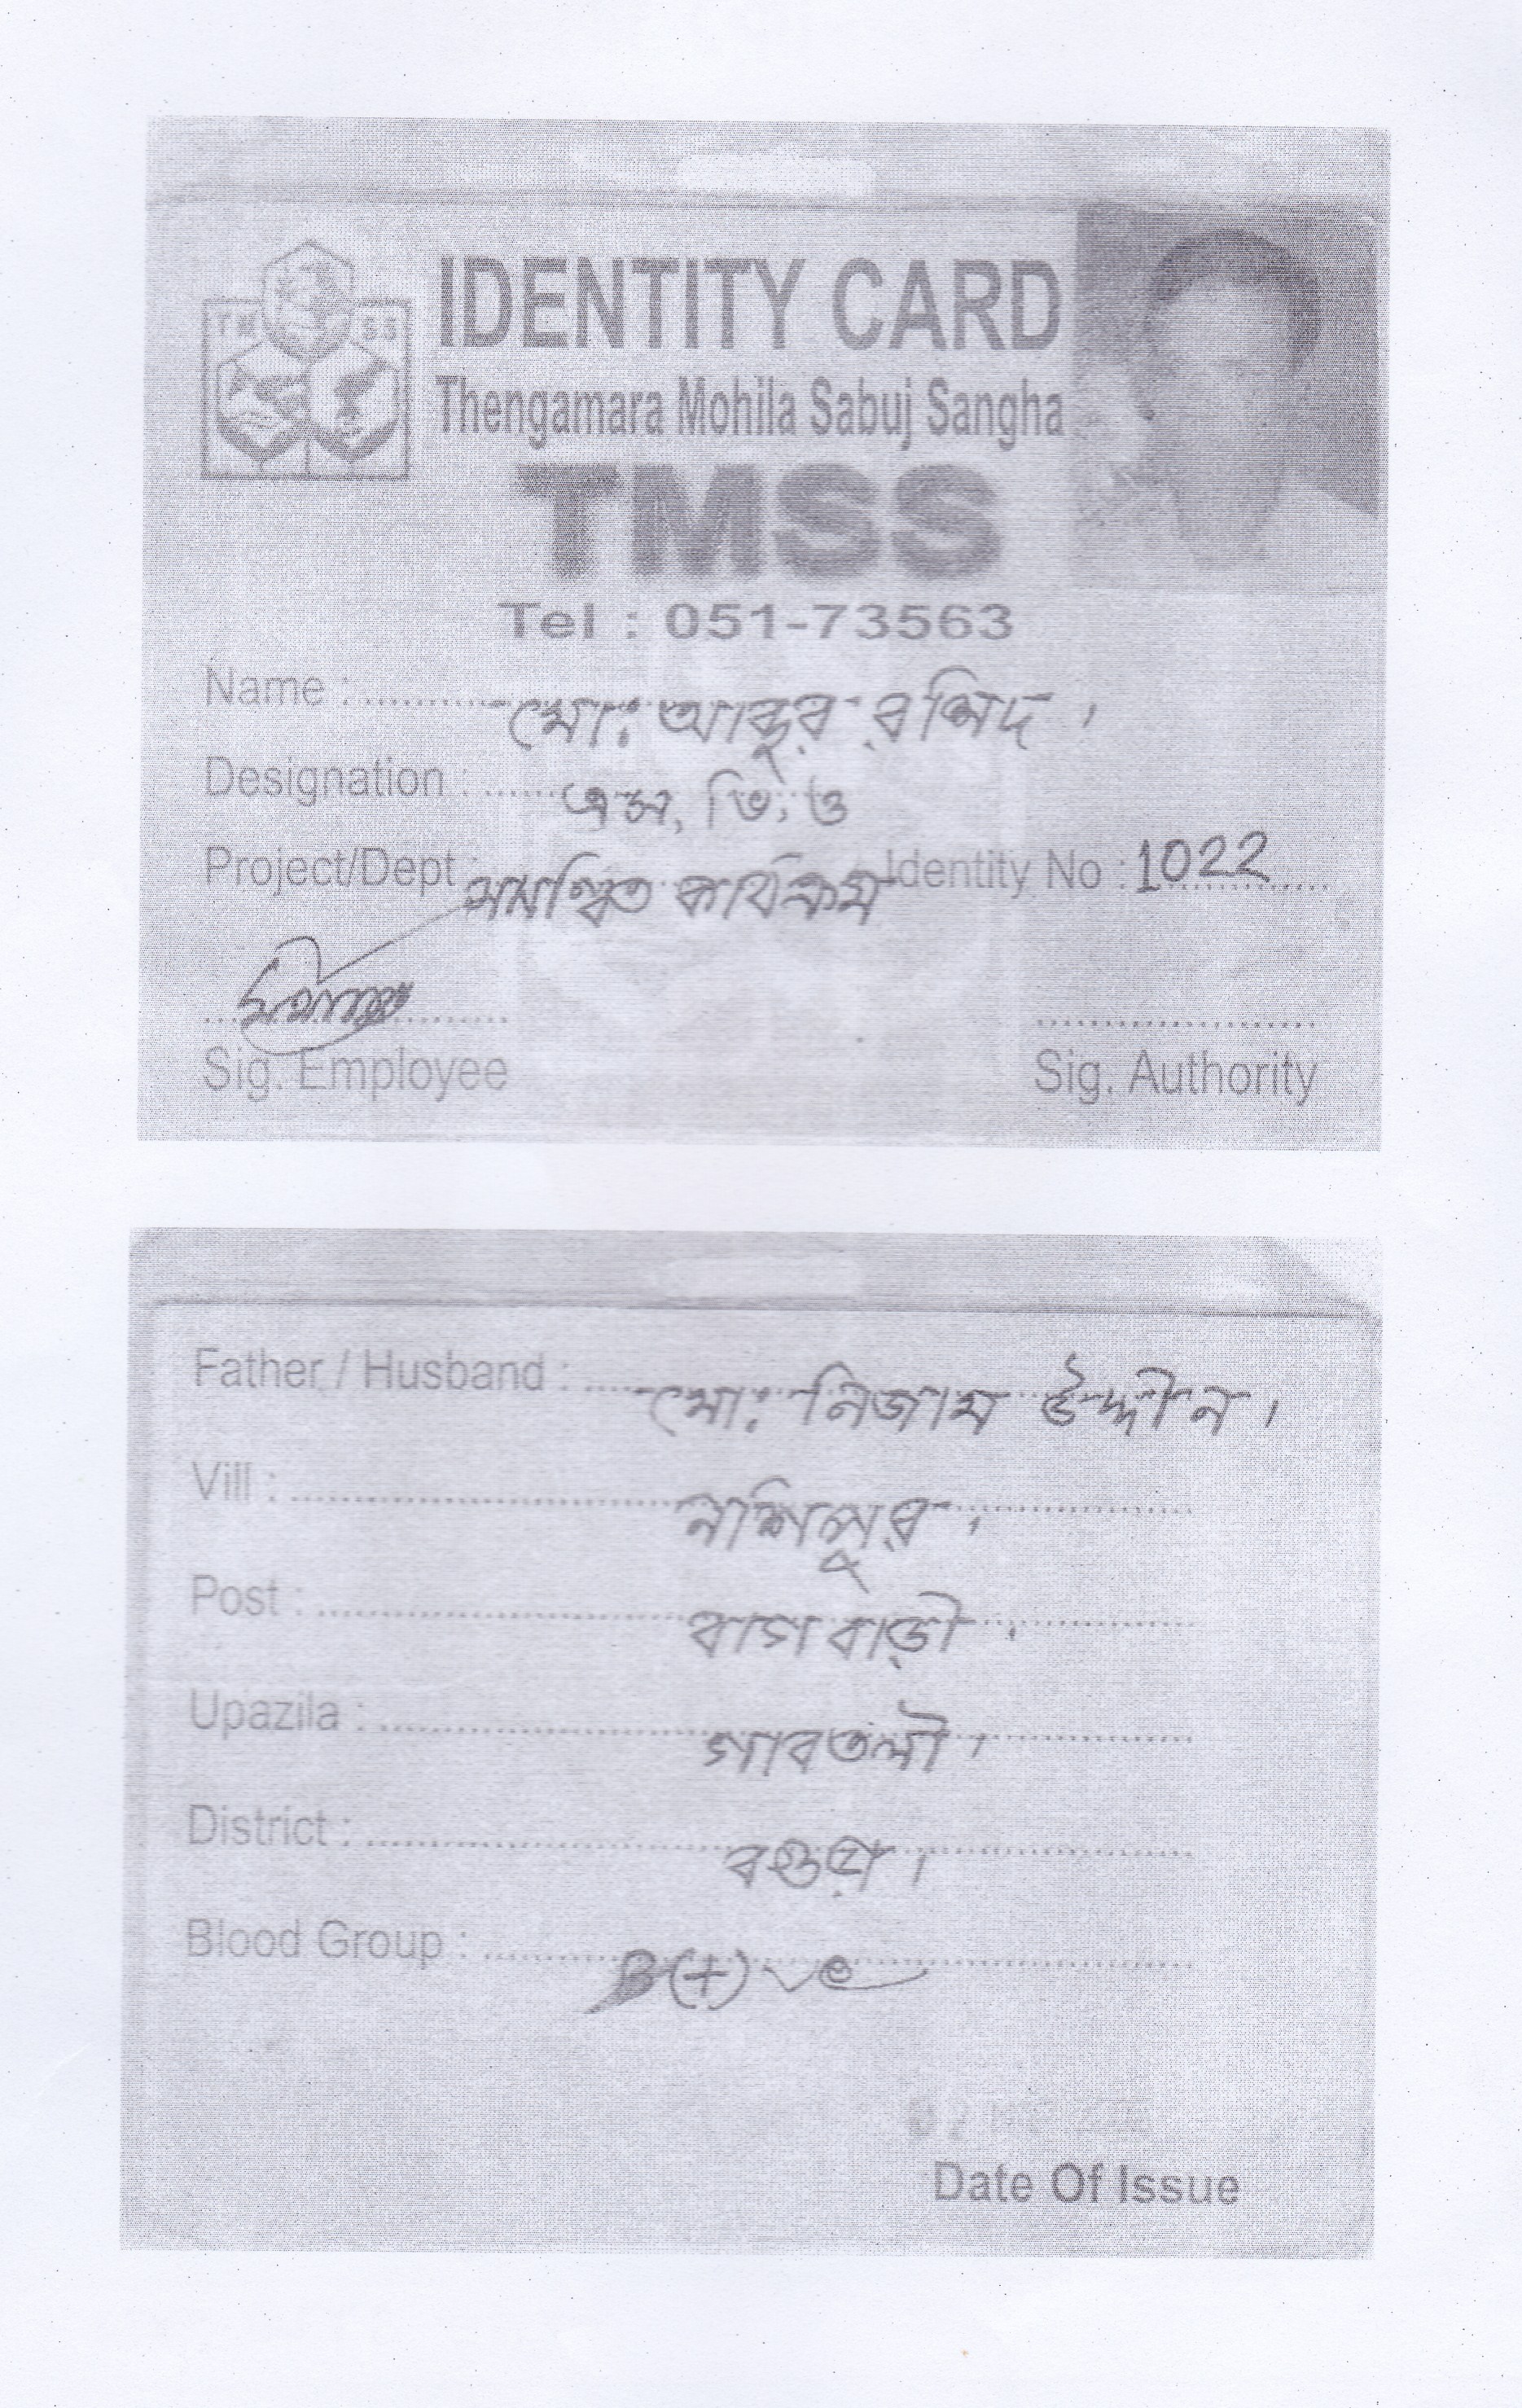 IDENTITY CARD
TM SS
Thengamara Mohila Sabuj Sangha
TMSS
Tel : 051-73563
Name : মো: আব্দুর রশিদ ।
Designation : এস, ভি, ও
Project/Dept : সমন্বিত কার্যক্রম Identity No : 1022
Sig. Employee Sig. Authority
Father / Husband : মো: নিজাম উদ্দীন ।
Vill : নশিপুর ।
Post : বাগবাড়ী ।
Upazila : গাবতলী ।
District : বগুড়া ।
Blood Group : B(+)ve
Date Of Issue